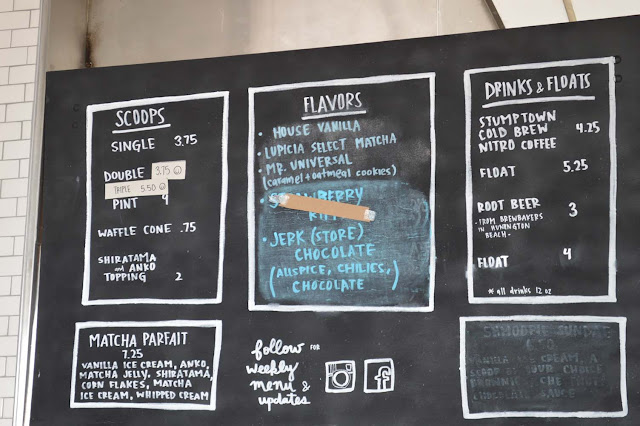 SCOOPS
SINGLE 3.75
DOUBLE 3.75
TRIPLE 5.50
PINT
WAFFLE CONE .75
SHIRATAMA
and ANKO
TOPPING 2
MATCHA PARFAIT
7.25
VANILLA ICE CREAM, ANKO,
MATCHA JELLY, SHIRATAMA,
CORN FLAKES, MATCHA
ICE CREAM, WHIPPED CREAM
FLAVORS
• HOUSE VANILLA
• LUPICIA SELECT MATCHA
• MR. UNIVERSAL
(caramel + oatmeal cookies)
• JERK (STORE)
CHOCOLATE
(ALLSPICE, CHILIES,
CHOCOLATE)
follow FOR
weekly
menu &
updates
DRINKS & FLOATS
STUMPTOWN
COLD BREW 4.25
NITRO COFFEE
FLOAT 5.25
ROOT BEER 3
- FROM BREWBAKERS
IN HUNINGTON
BEACH -
FLOAT 4
* all drinks 12 oz
SUNDAE
VANILLA ICE CREAM, A
SCOOP OF YOUR CHOICE
BROWNIE,
CHOCOLATE SAUCE